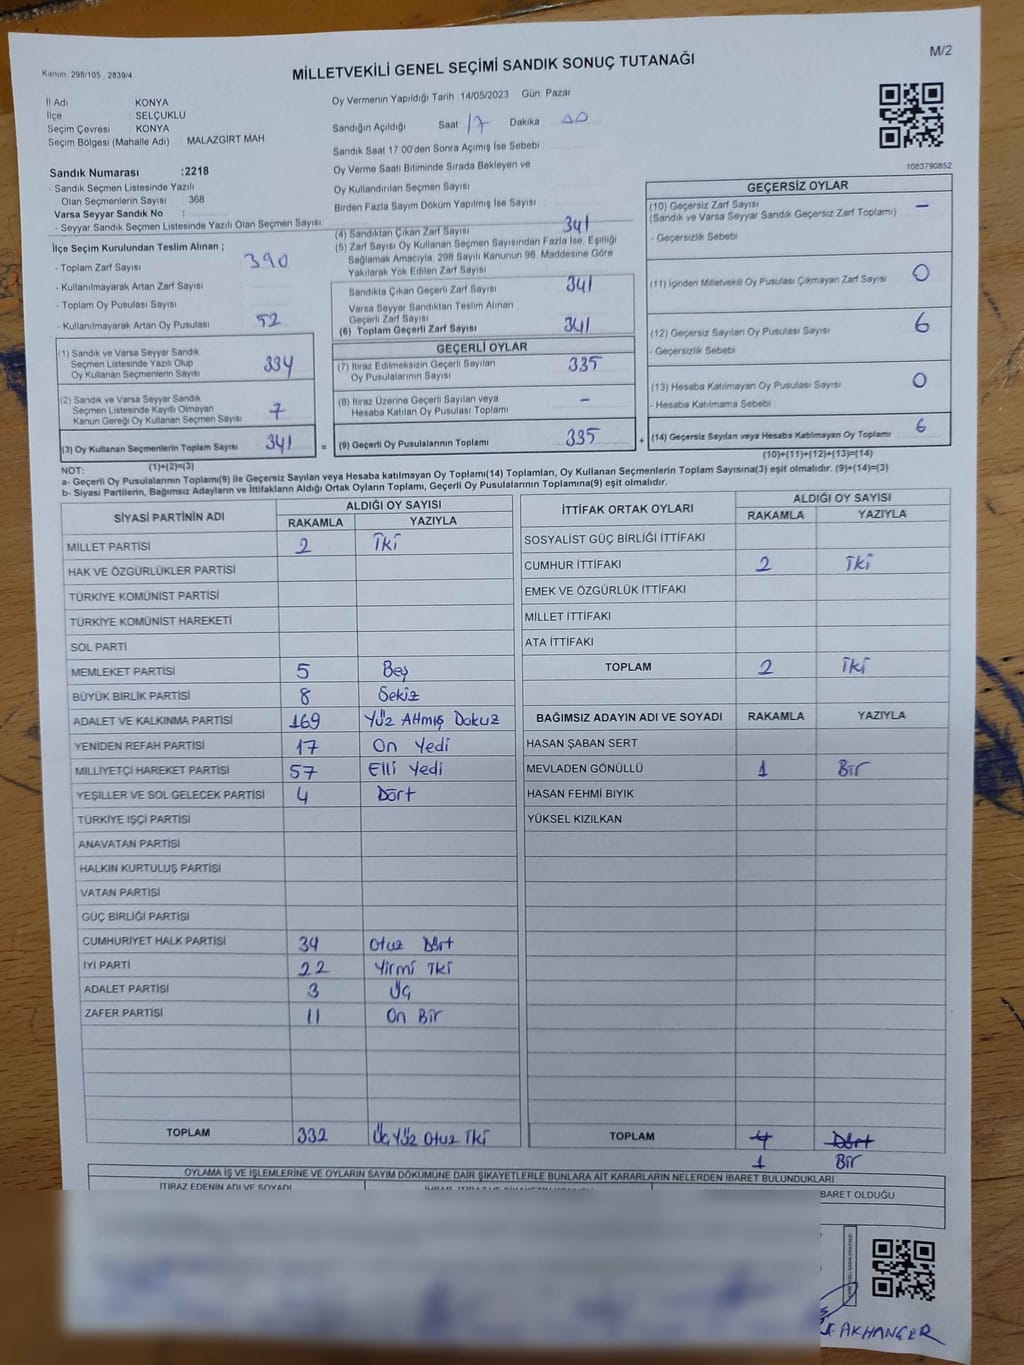 M/2
Kanun, 298/105 , 2839/4
MİLLETVEKİLİ GENEL SEÇİMİ SANDIK SONUÇ TUTANAĞI
İl Adı : KONYA
İlçe : SELÇUKLU
Seçim Çevresi : KONYA
Seçim Bölgesi (Mahalle Adı) : MALAZGİRT MAH
Oy Vermenin Yapıldığı Tarih : 14/05/2023 Gün: Pazar
Sandığın Açıldığı Saat 17 Dakika
Sandık Saat 17.00'den Sonra Açımış İse Sebebi :
Oy Verme Saati Bitiminde Sırada Bekleyen ve
Oy Kullandırılan Seçmen Sayısı :
Birden Fazla Sayım Döküm Yapılmış İse Sayısı :
1083790852
Sandık Numarası :2218
- Sandık Seçmen Listesinde Yazılı
Olan Seçmenlerin Sayısı : 368
Varsa Seyyar Sandık No :
- Seyyar Sandık Seçmen Listesinde Yazılı Olan Seçmen Sayısı:
İlçe Seçim Kurulundan Teslim Alınan ;
- Toplam Zarf Sayısı : 390
- Kullanılmayarak Artan Zarf Sayısı :
- Toplam Oy Pusulası Sayısı :
- Kullanılmayarak Artan Oy Pusulası : 52
(1) Sandık ve Varsa Seyyar Sandık
Seçmen Listesinde Yazılı Olup
Oy Kullanan Seçmenlerin Sayısı 334
(2) Sandık ve Varsa Seyyar Sandık
Seçmen Listesinde Kayıtlı Olmayan
Kanun Gereği Oy Kullanan Seçmen Sayısı 7
(3) Oy Kullanan Seçmenlerin Toplam Sayısı 341 =
(1)+(2)=(3)
(4) Sandıktan Çıkan Zarf Sayısı 341
(5) Zarf Sayısı Oy Kullanan Seçmen Sayısından Fazla İse, Eşitliği
Sağlamak Amacıyla, 298 Sayılı Kanunun 98. Maddesine Göre
Yakılarak Yok Edilen Zarf Sayısı
Sandıkta Çıkan Geçerli Zarf Sayısı 341
Varsa Seyyar Sandıktan Teslim Alınan
Geçerli Zarf Sayısı
(6) Toplam Geçerli Zarf Sayısı 341
GEÇERLİ OYLAR
(7) İtiraz Edilmeksizin Geçerli Sayılan
Oy Pusulalarının Sayısı 335
(8) İtiraz Üzerine Geçerli Sayılan veya
Hesaba Katılan Oy Pusulası Toplamı -
(9) Geçerli Oy Pusulalarının Toplamı 335 +
GEÇERSİZ OYLAR
(10) Geçersiz Zarf Sayısı
(Sandık ve Varsa Seyyar Sandık Geçersiz Zarf Toplamı) -
- Geçersizlik Sebebi
(11) İçinden Milletvekili Oy Pusulası Çıkmayan Zarf Sayısı 0
(12) Geçersiz Sayılan Oy Pusulası Sayısı 6
- Geçersizlik Sebebi
(13) Hesaba Katılmayan Oy Pusulası Sayısı 0
- Hesaba Katılmama Sebebi
(14) Geçersiz Sayılan veya Hesaba Katılmayan Oy Toplamı 6
(10)+(11)+(12)+(13)=(14)
NOT:
a- Geçerli Oy Pusulalarının Toplamı(9) ile Geçersiz Sayılan veya Hesaba katılmayan Oy Toplamı(14) Toplamları, Oy Kullanan Seçmenlerin Toplam Sayısına(3) eşit olmalıdır. (9)+(14)=(3)
b- Siyasi Partilerin, Bağımsız Adayların ve İttifakların Aldığı Ortak Oyların Toplamı, Geçerli Oy Pusulalarının Toplamına(9) eşit olmalıdır.
SİYASİ PARTİNİN ADI
ALDIĞI OY SAYISI
RAKAMLA YAZIYLA
MİLLET PARTİSİ 2 İki
HAK VE ÖZGÜRLÜKLER PARTİSİ
TÜRKİYE KOMÜNİST PARTİSİ
TÜRKİYE KOMÜNİST HAREKETİ
SOL PARTİ
MEMLEKET PARTİSİ 5 Beş
BÜYÜK BİRLİK PARTİSİ 8 Sekiz
ADALET VE KALKINMA PARTİSİ 169 Yüz Altmış Dokuz
YENİDEN REFAH PARTİSİ 17 On Yedi
MİLLİYETÇİ HAREKET PARTİSİ 57 Elli Yedi
YEŞİLLER VE SOL GELECEK PARTİSİ 4 Dört
TÜRKİYE İŞÇİ PARTİSİ
ANAVATAN PARTİSİ
HALKIN KURTULUŞ PARTİSİ
VATAN PARTİSİ
GÜÇ BİRLİĞİ PARTİSİ
CUMHURİYET HALK PARTİSİ 34 Otuz Dört
İYİ PARTİ 22 Yirmi İki
ADALET PARTİSİ 3 Üç
ZAFER PARTİSİ 11 On Bir
TOPLAM 332 Üç Yüz Otuz İki
İTTİFAK ORTAK OYLARI
ALDIĞI OY SAYISI
RAKAMLA YAZIYLA
SOSYALİST GÜÇ BİRLİĞİ İTTİFAKI
CUMHUR İTTİFAKI 2 İki
EMEK VE ÖZGÜRLÜK İTTİFAKI
MİLLET İTTİFAKI
ATA İTTİFAKI
TOPLAM 2 İki
BAĞIMSIZ ADAYIN ADI VE SOYADI RAKAMLA YAZIYLA
HASAN ŞABAN SERT
MEVLADEN GÖNÜLLÜ 1 Bir
HASAN FEHMI BIYIK
YÜKSEL KIZILKAN
TOPLAM 4 Dört
1 Bir
OYLAMA İŞ VE İŞLEMLERİNE VE OYLARIN SAYIM DÖKÜMÜNE DAİR ŞİKAYETLERLE BUNLARA AİT KARARLARIN NELERDEN İBARET BULUNDUKLARI
İTİRAZ EDENİN ADI VE SOYADI
BARET OLDUĞU
AKHANGER